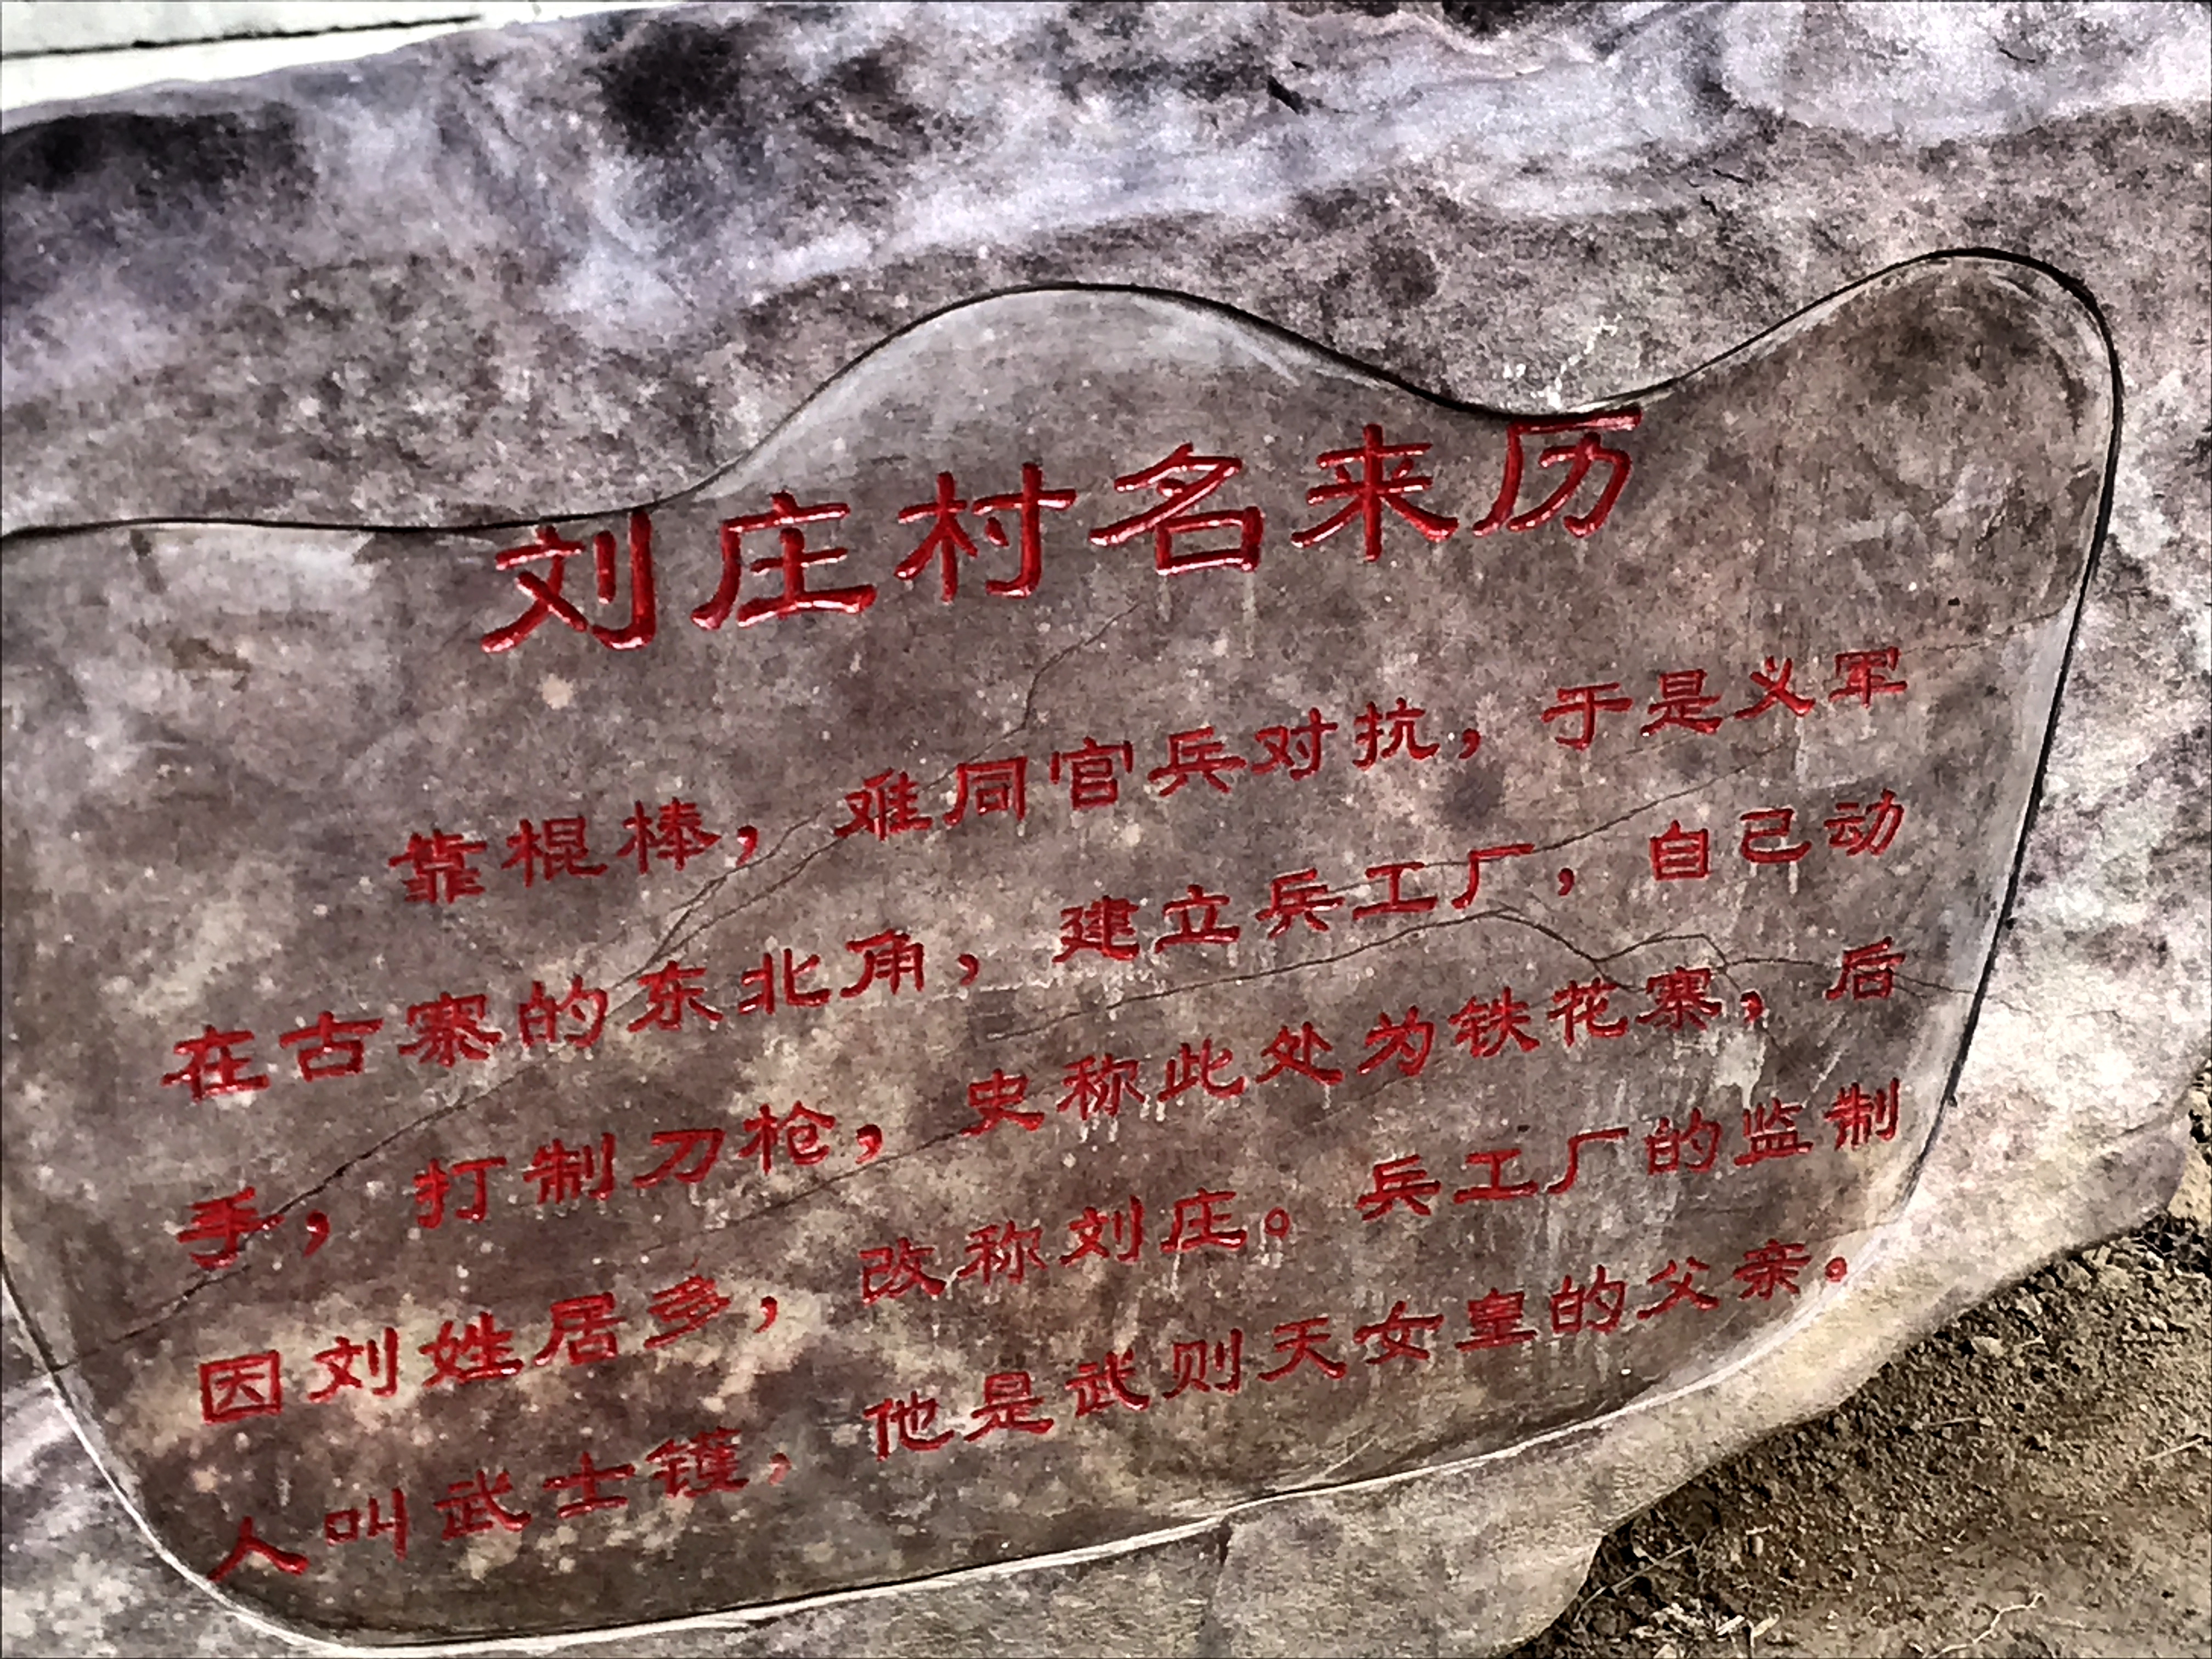 刘庄村名来历
靠棍棒，难同官兵对抗，于是义军
在古寨的东北角，建立兵工厂，自己动
手，打制刀枪，史称此处为铁花寨，后
因刘姓居多，改称刘庄。兵工厂的监制
人叫武士镬，他是武则天女皇的父亲。